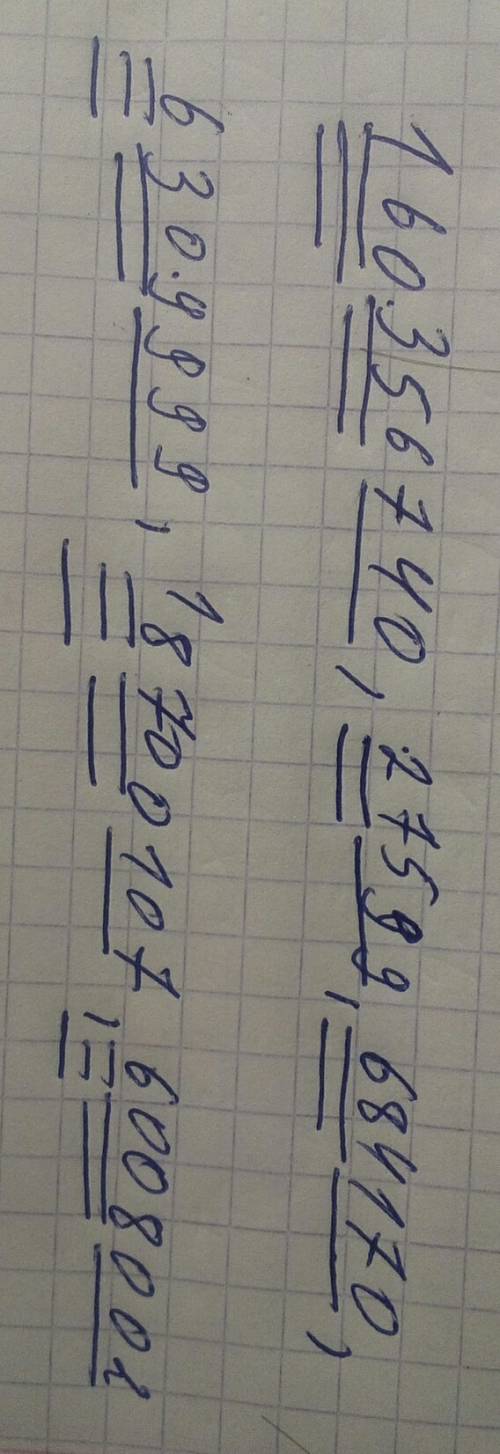 160.356740, 27599, 684170,
630.9999, 18700107, 6008002